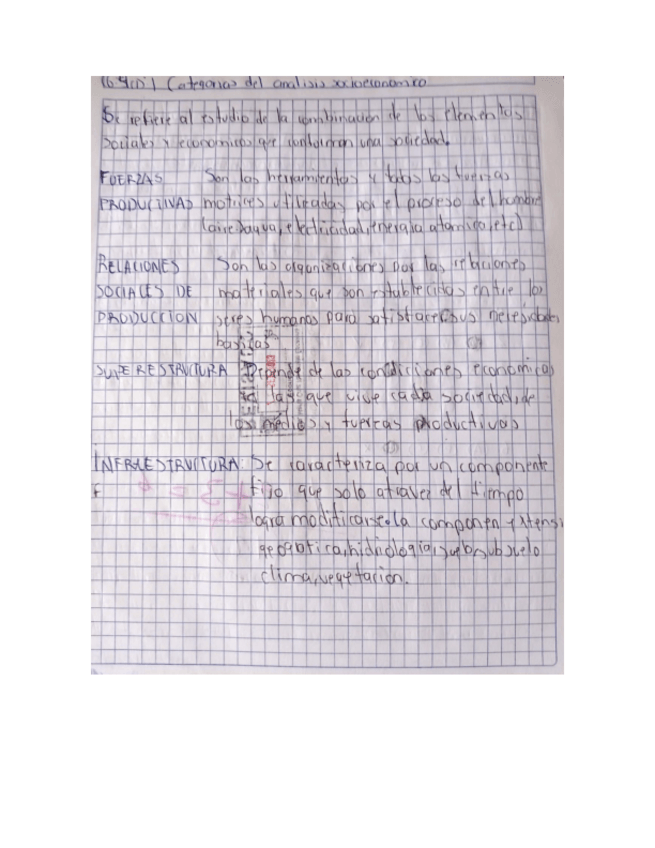 Categorias del analisis socioeconomico
Se refiere al estudio de la combinación de los elementos
sociales y economicos que conforman una sociedad.
FUERZAS Son las herramientas y todas las fuerzas
PRODUCTIVAS motrices utilizadas por el proceso del hombre
(aire, agua, electricidad, energia atomica, etc)
RELACIONES Son las organizaciones por las relaciones
SOCIALES DE materiales que son establecidas entre los
PRODUCCION seres humanos para satisfacer sus necesidades
basicas
SUPERESTRUCTURA Depende de las condiciones economicas
las que vive cada sociedad, de
los medios y fuerzas productivas
INFRAESTRUCTURA: Se caracteriza por un componente
fijo que solo atravez del tiempo
logra modificarse. la componen extensi
geografica, hidrologia, suelo, subsuelo
clima, vegetacion.